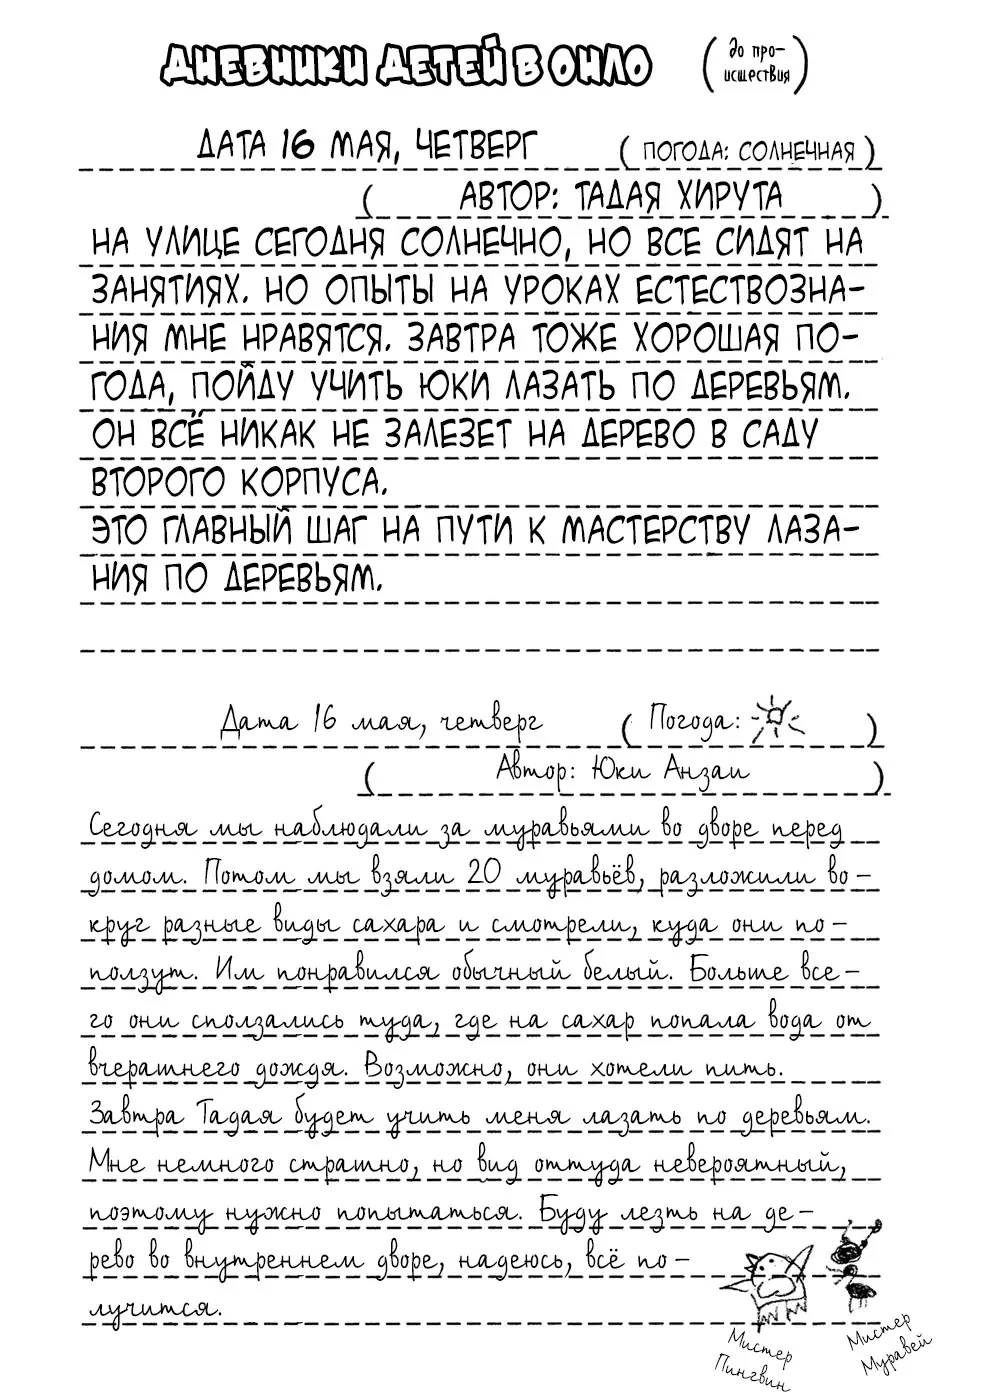 ДНЕВНИКИ ДЕТЕЙ В ОНЛО
(до про-
исшествия)
ДАТА 16 МАЯ, ЧЕТВЕРГ (ПОГОДА: СОЛНЕЧНАЯ)
(АВТОР: ТАДАЯ ХИРУТА)
НА УЛИЦЕ СЕГОДНЯ СОЛНЕЧНО, НО ВСЕ СИДЯТ НА
ЗАНЯТИЯХ. НО ОПЫТЫ НА УРОКАХ ЕСТЕСТВОЗНА-
НИЯ МНЕ НРАВЯТСЯ. ЗАВТРА ТОЖЕ ХОРОШАЯ ПО-
ГОДА, ПОЙДУ УЧИТЬ ЮКИ ЛАЗАТЬ ПО ДЕРЕВЬЯМ.
ОН ВСЁ НИКАК НЕ ЗАЛЕЗЕТ НА ДЕРЕВО В САДУ
ВТОРОГО КОРПУСА.
ЭТО ГЛАВНЫЙ ШАГ НА ПУТИ К МАСТЕРСТВУ ЛАЗА-
НИЯ ПО ДЕРЕВЬЯМ.
Дата 16 мая, четверг (Погода: )
(Автор: Юки Анзаи)
Сегодня мы наблюдали за муравьями во дворе перед
домом. Потом мы взяли 20 муравьёв, разложили во-
круг разные виды сахара и смотрели, куда они по-
ползут. Им понравился обычный белый. Больше все-
го они сползались туда, где на сахар попала вода от
вчерашнего дождя. Возможно, они хотели пить.
Завтра Тадая будет учить меня лазать по деревьям.
Мне немного страшно, но вид оттуда невероятный,
поэтому нужно попытаться. Буду лезть на де-
рево во внутреннем дворе, надеюсь, всё по-
лучится.
Мистер
Пингвин
Мистер
Муравей